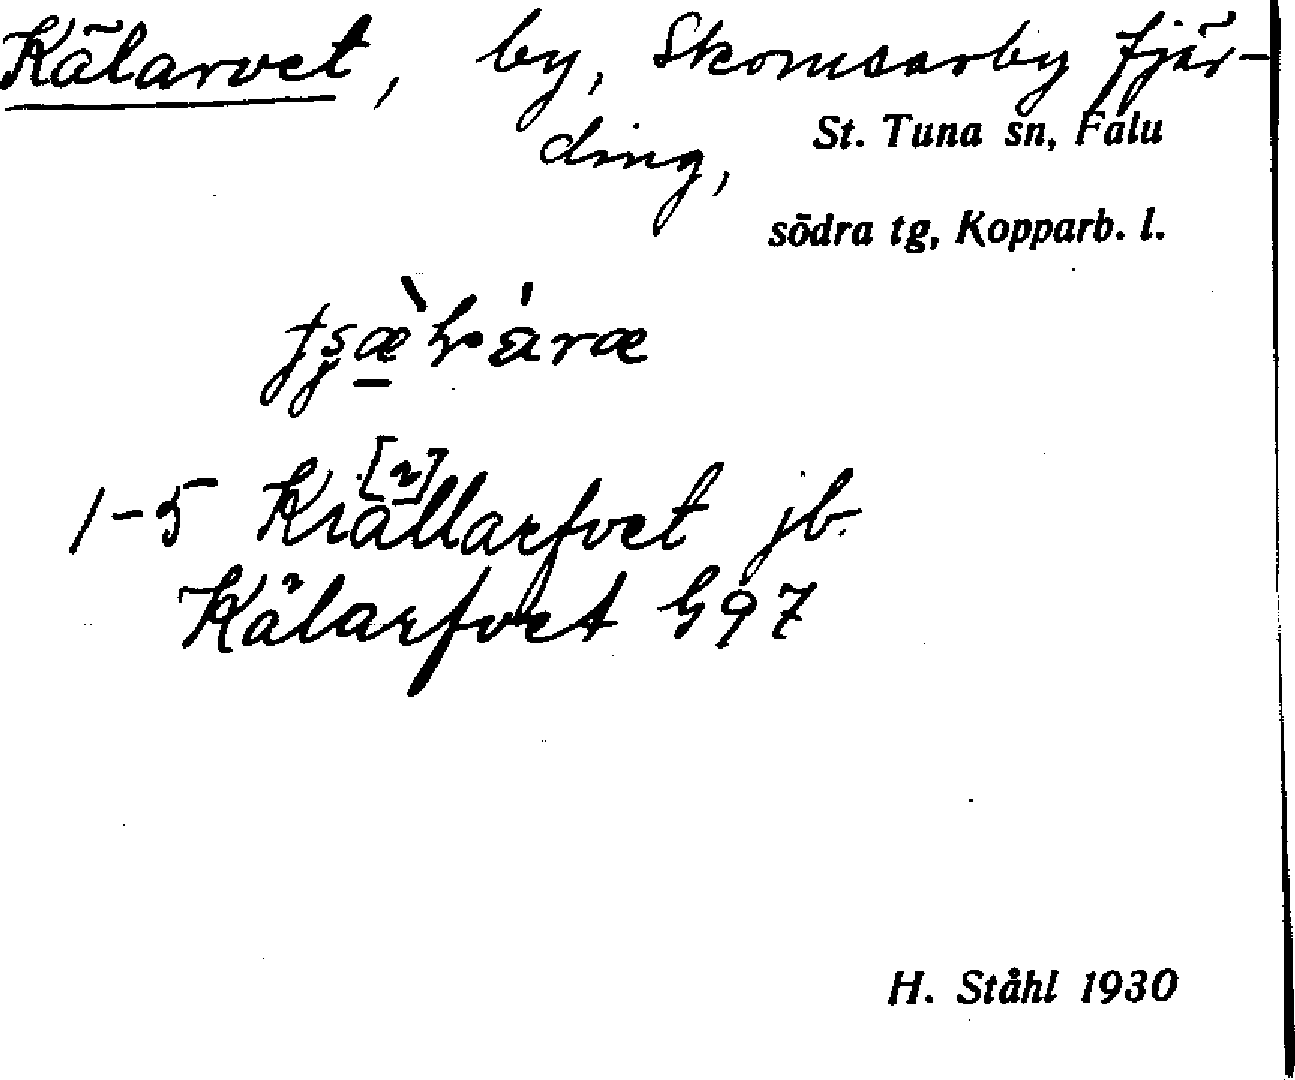 Kälarvet, by, Skomsarby fjär-
ding,
St. Tuna sn, Falu
södra tg, Kopparb. l.
1-5 Kiällarfvet jb.
Kälarfvet G97
H. Ståhl 1930